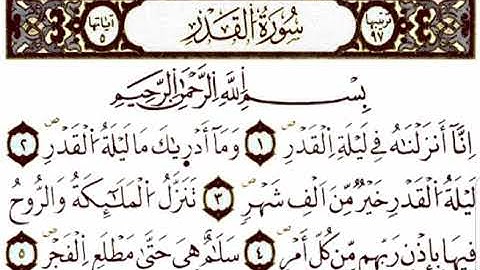 ترتيبها ٩٧ سُورَةُ الْقَدْرِ آياتها ٥
بِسْمِ اللَّهِ الرَّحْمَٰنِ الرَّحِيمِ
اِنَّآ أَنزَلْنَاهُ فِي لَيْلَةِ الْقَدْرِ ١ وَمَآ أَدْرِيكَ مَا لَيْلَةُ الْقَدْرِ ٢
لَيْلَةُ الْقَدْرِ خَيْرٌ مِّنَ اَلْفِ شَهْرٍ ٣ تَنَزَّلُ الْمَلَٰٓئِكَةُ وَالرُّوحُ
فِيهَا بِإِذْنِ رَبِّهِم مِّن كُلِّ أَمْرٍ ٤ سَلَٰمٌ هِيَ حَتَّىٰ مَطْلَعِ الْفَجْرِ ٥